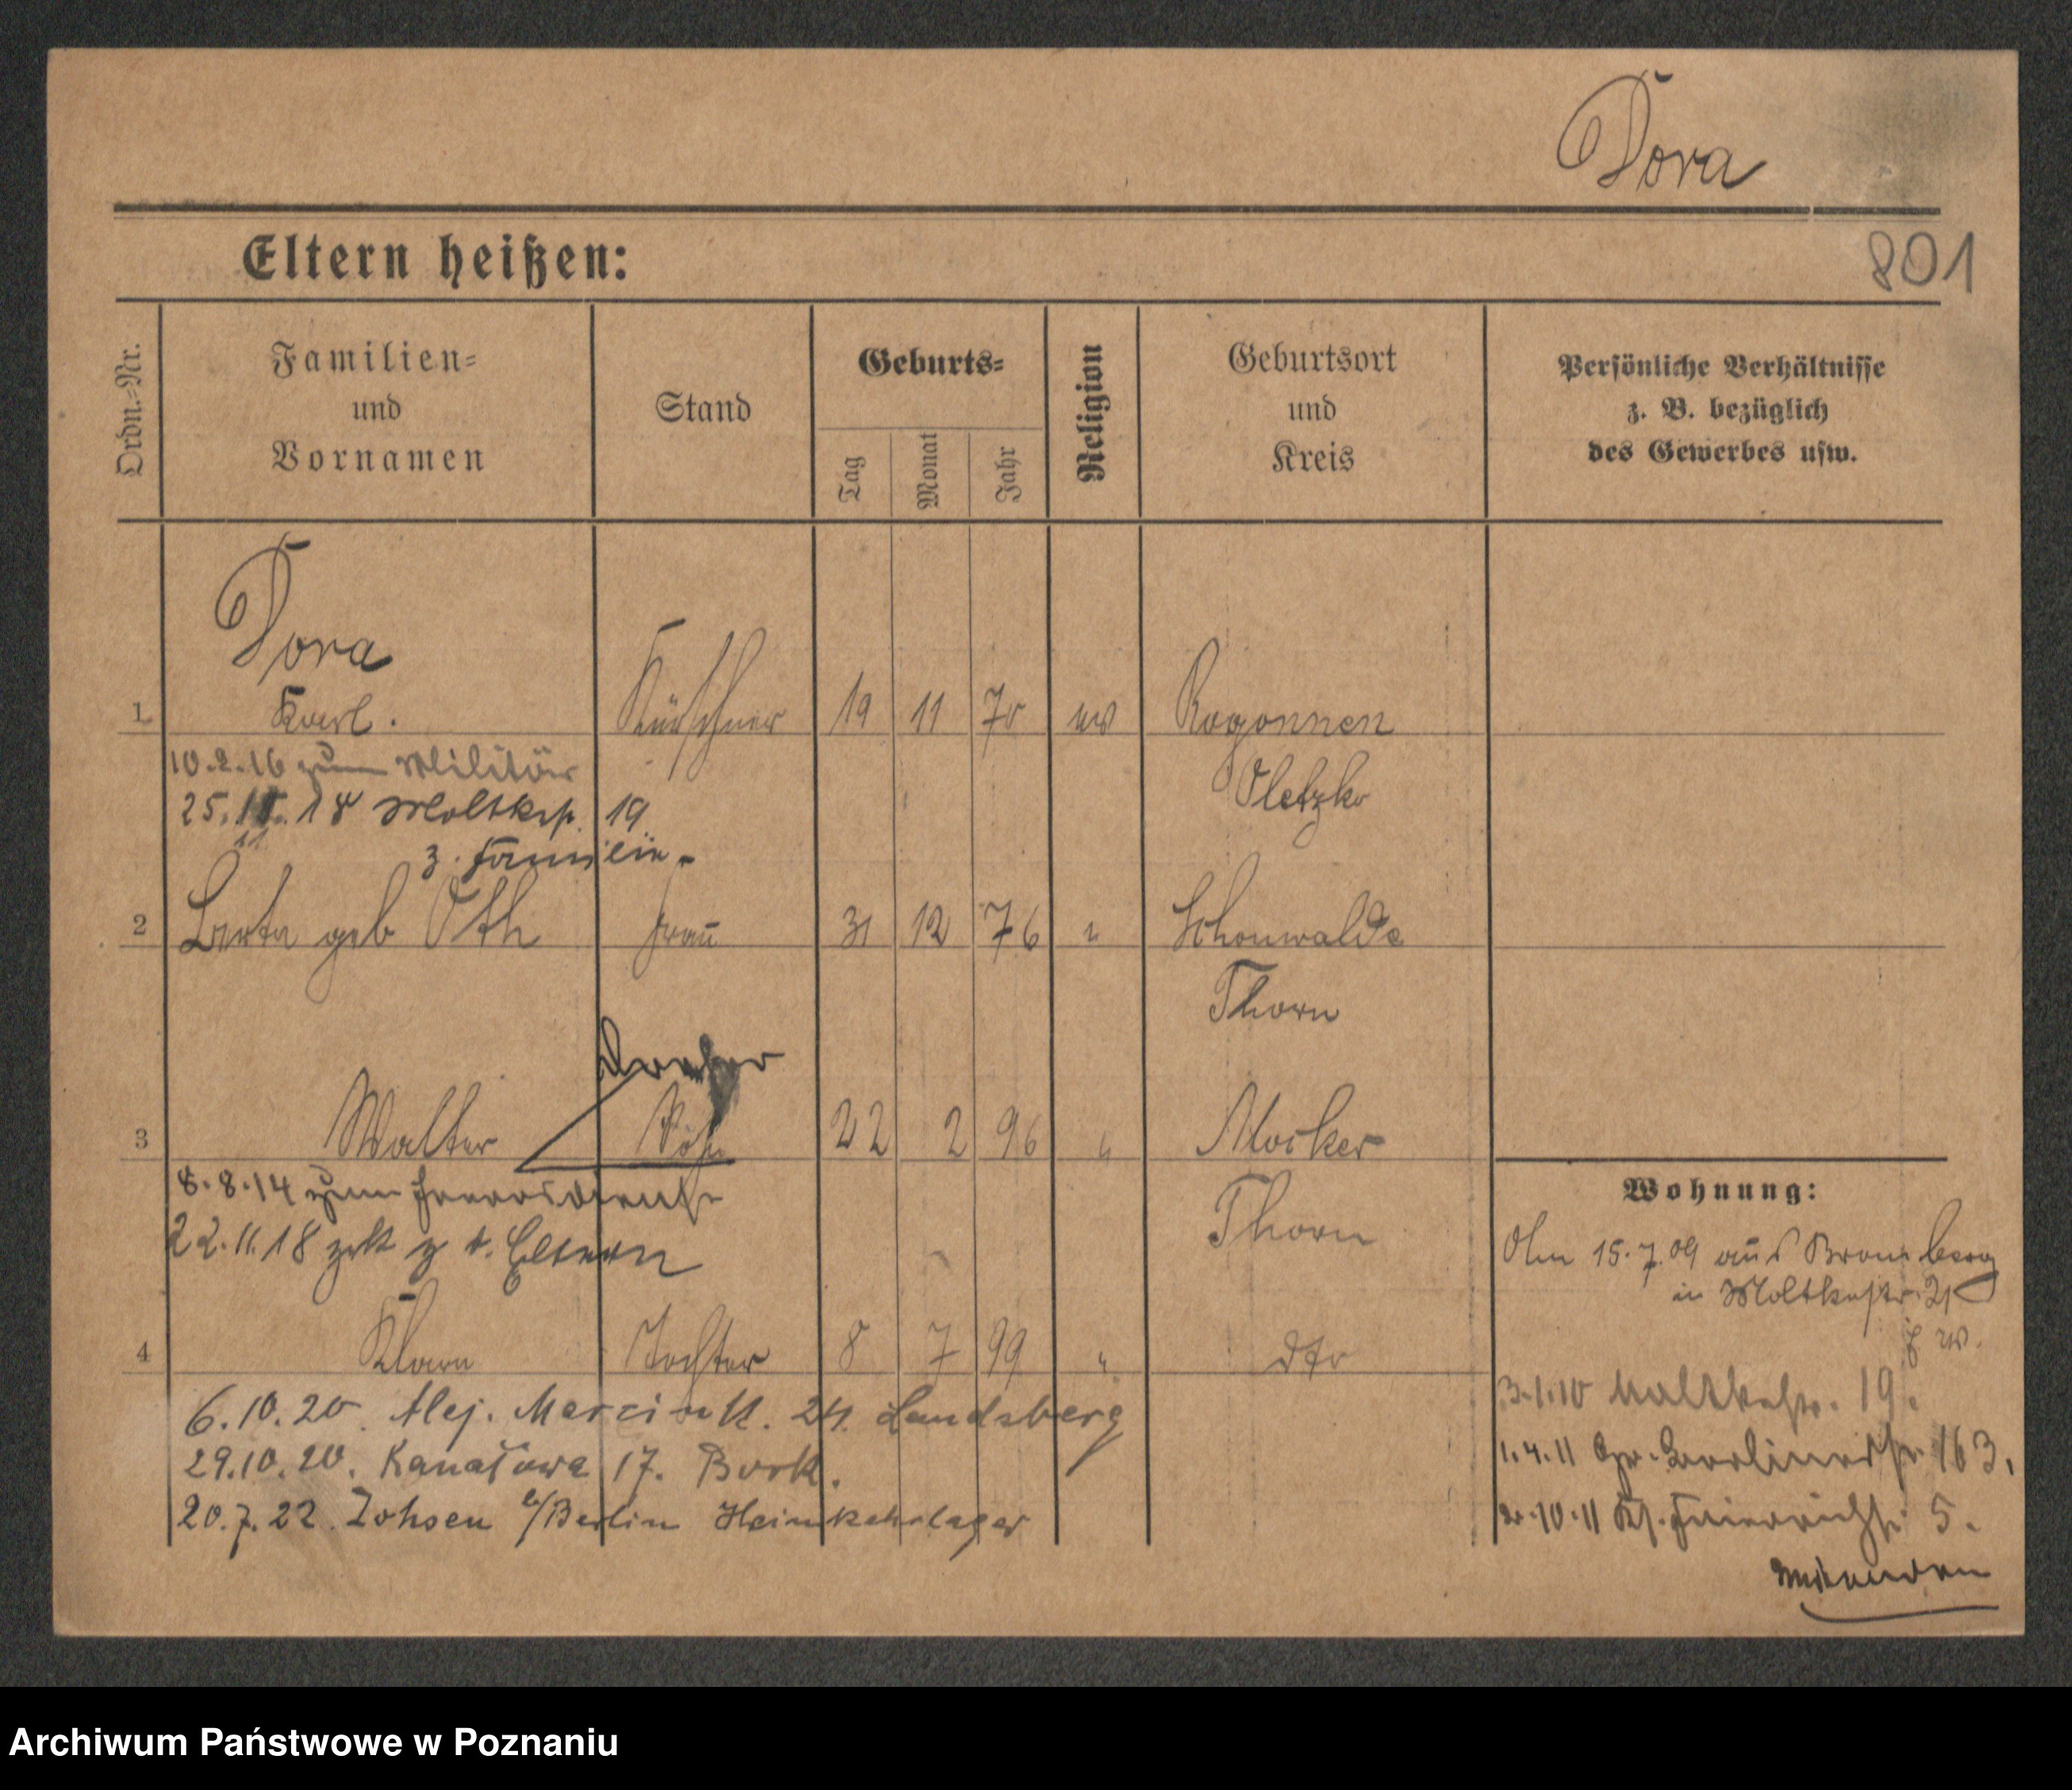 Dora
Eltern heißen:
801
Ordn.-Nr.
Familien-
und
Vornamen
Stand
Geburts-
Tag
Monat
Jahr
Religion
Geburtsort
und
Kreis
Persönliche Verhältnisse
z. B. bezüglich
des Gewerbes usw.
Dora
1 Karl. Kürschner 19 11 70 ev Rogonnen
10.2.16 zum Militär
Oletzko
25. 11. 18 Moltkestr. 19
z. Familie.
2 Berta geb Oth Frau 31 12 76 " Schonwalde
Thorn
Dreher
3 Walter Sohn 22 2 96 " Mocker
8.8.14 zum Heeresdienst
Thorn
22.11.18 zrk z d. Eltern
4 Klara Tochter 8 7 99 " dto
6.10.20. Alej. Marcink. 24. Landsberg
29.10.20. Kanałowa 17. Bork.
20.7.22. Zohsen b/Berlin Heimkehrlager
Wohnung:
Am 15.7.09 aus Bromberg
in Moltkestr. 21
3.1.10 Moltkestr. 19.
1.4.11 Gr. Berlinerstr 163.
2.10.11 5.
wenden
Archiwum Państwowe w Poznaniu